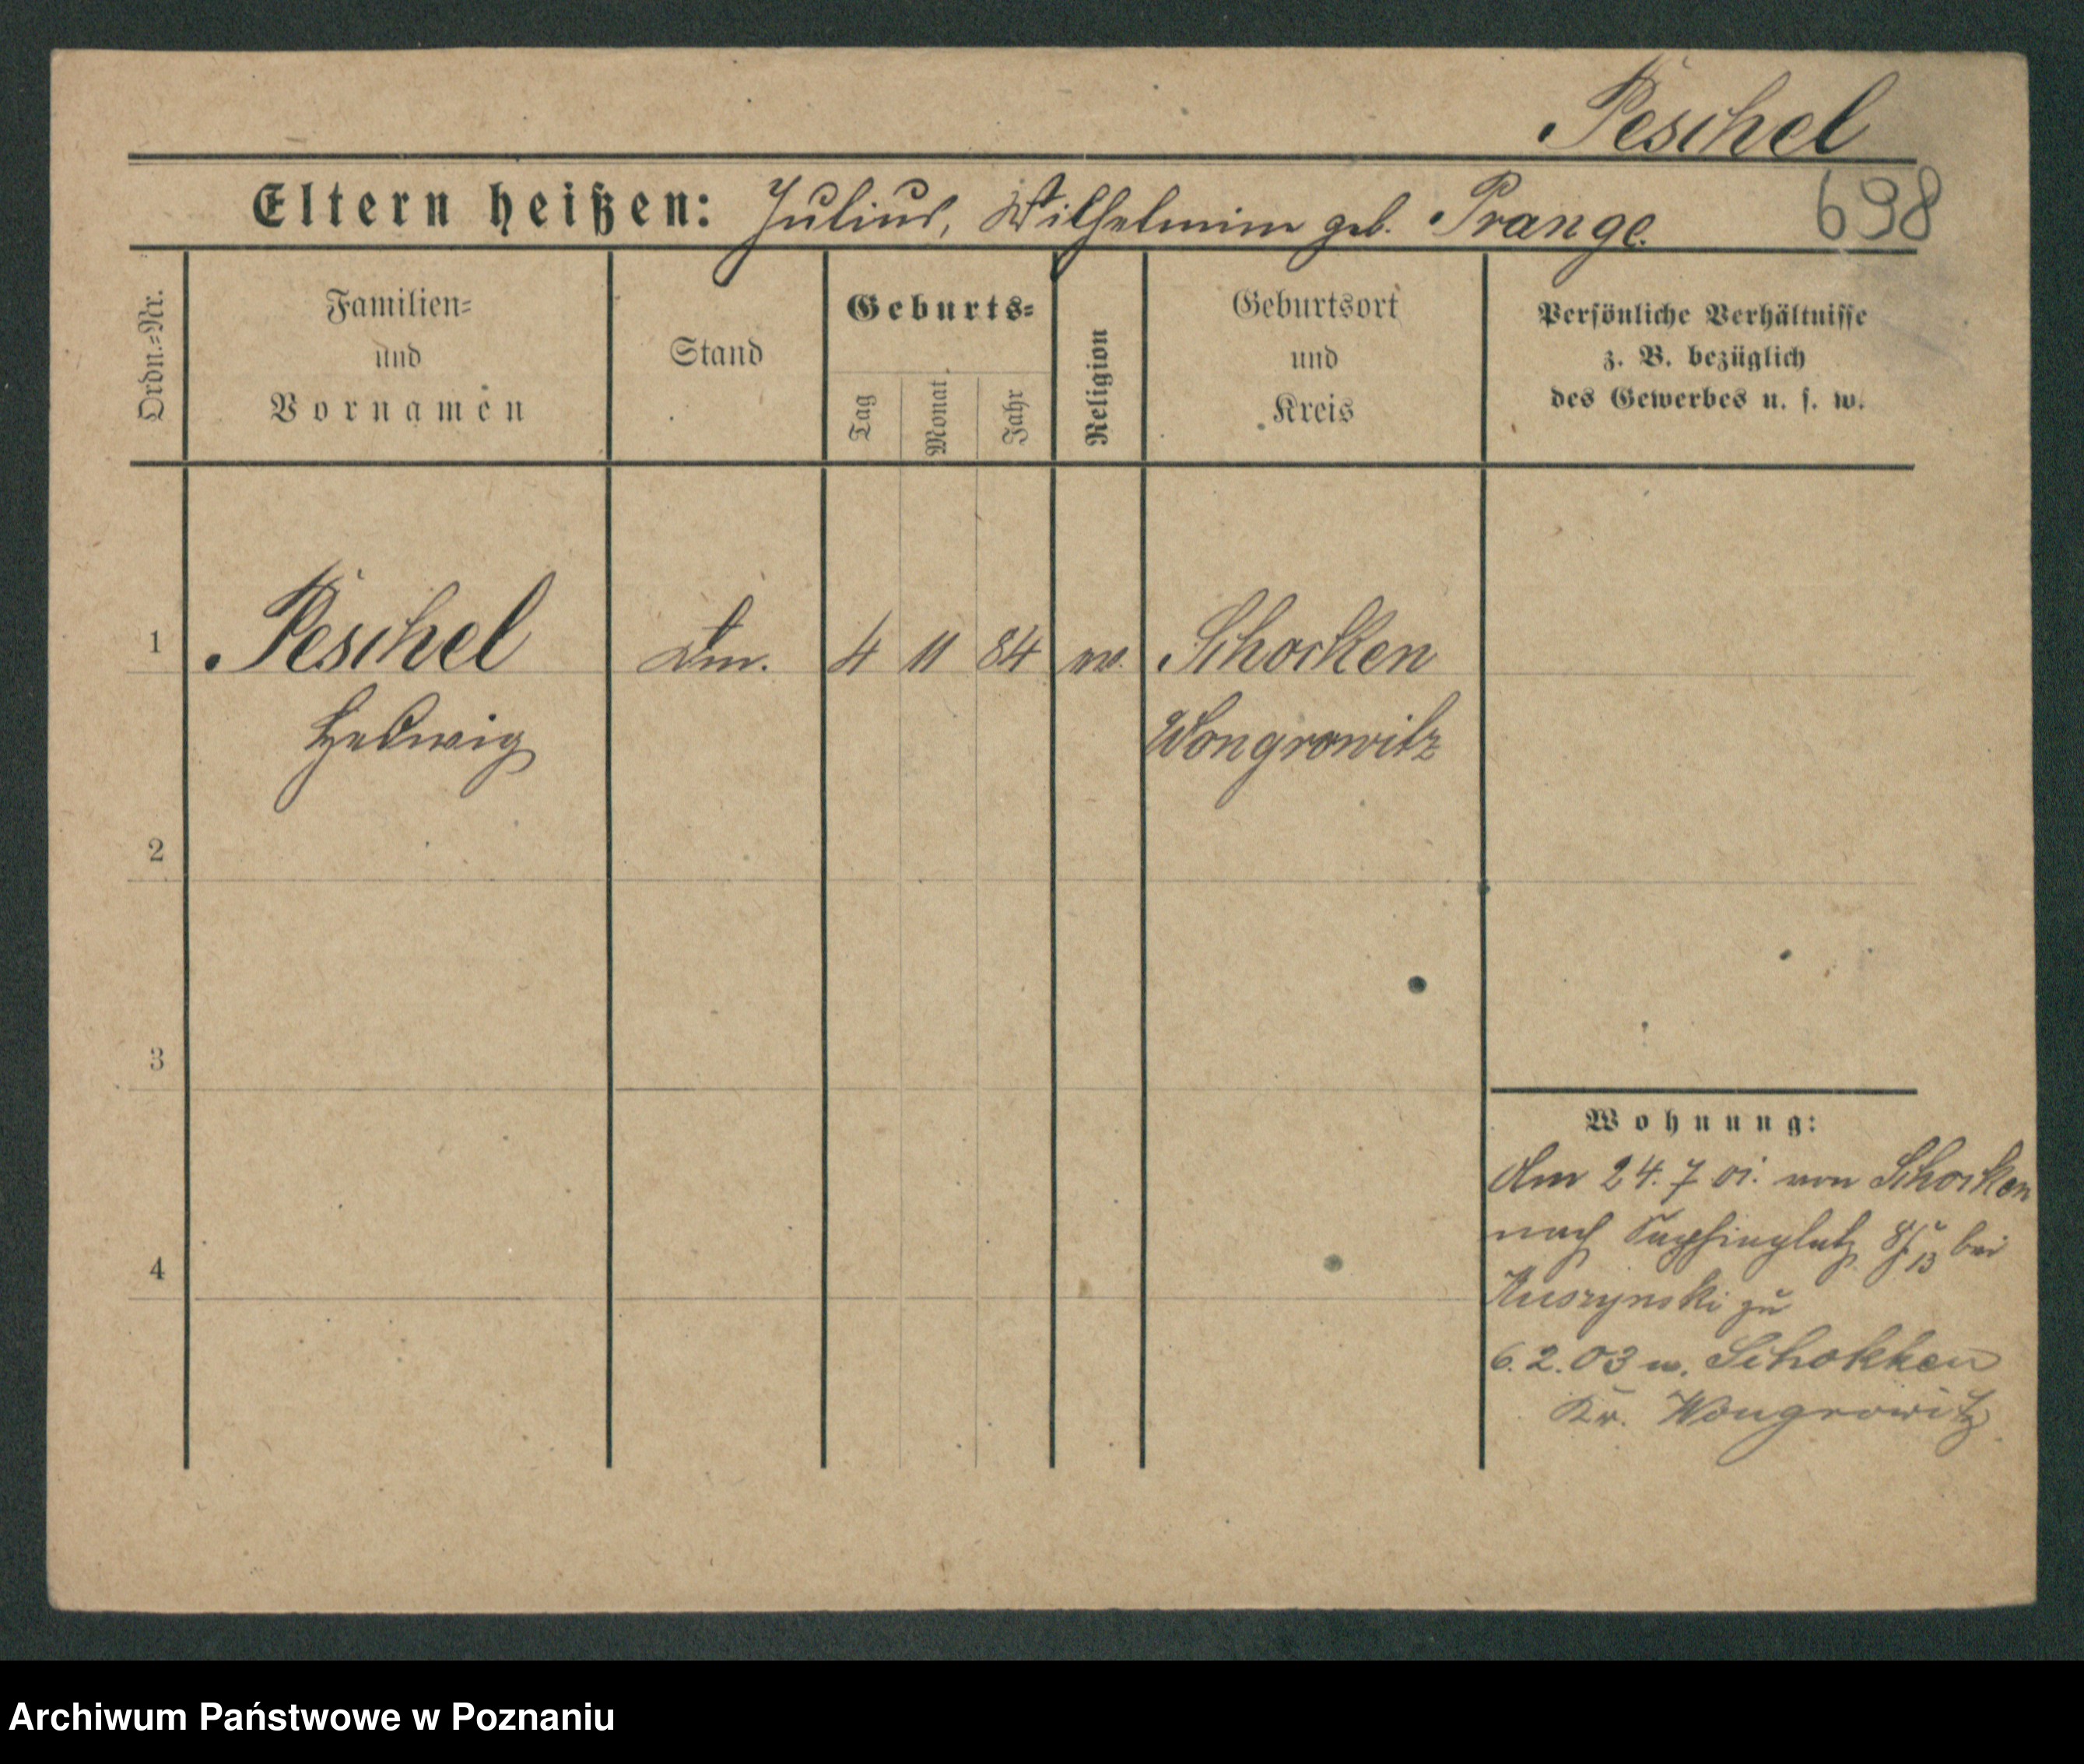 Peschel
Eltern heißen: Julius, Wilhelmine geb. Prange.
698
Ordn.=Nr.
Familien=
und
Vornamen
Stand
Geburts=
Tag
Monat
Jahr
Religion
Geburtsort
und
Kreis
Persönliche Verhältnisse
z. B. bezüglich
des Gewerbes u. s. w.
1 Peschel 4 11 84 Schocken
Hedwig Wongrowitz
2
3
4
Wohnung:
Am 24. 7 01. von Schocken
nach Saphieplatz bei
zu
6. 2. 03 n. Schokken
Kr. Wongrowitz
Archiwum Państwowe w Poznaniu